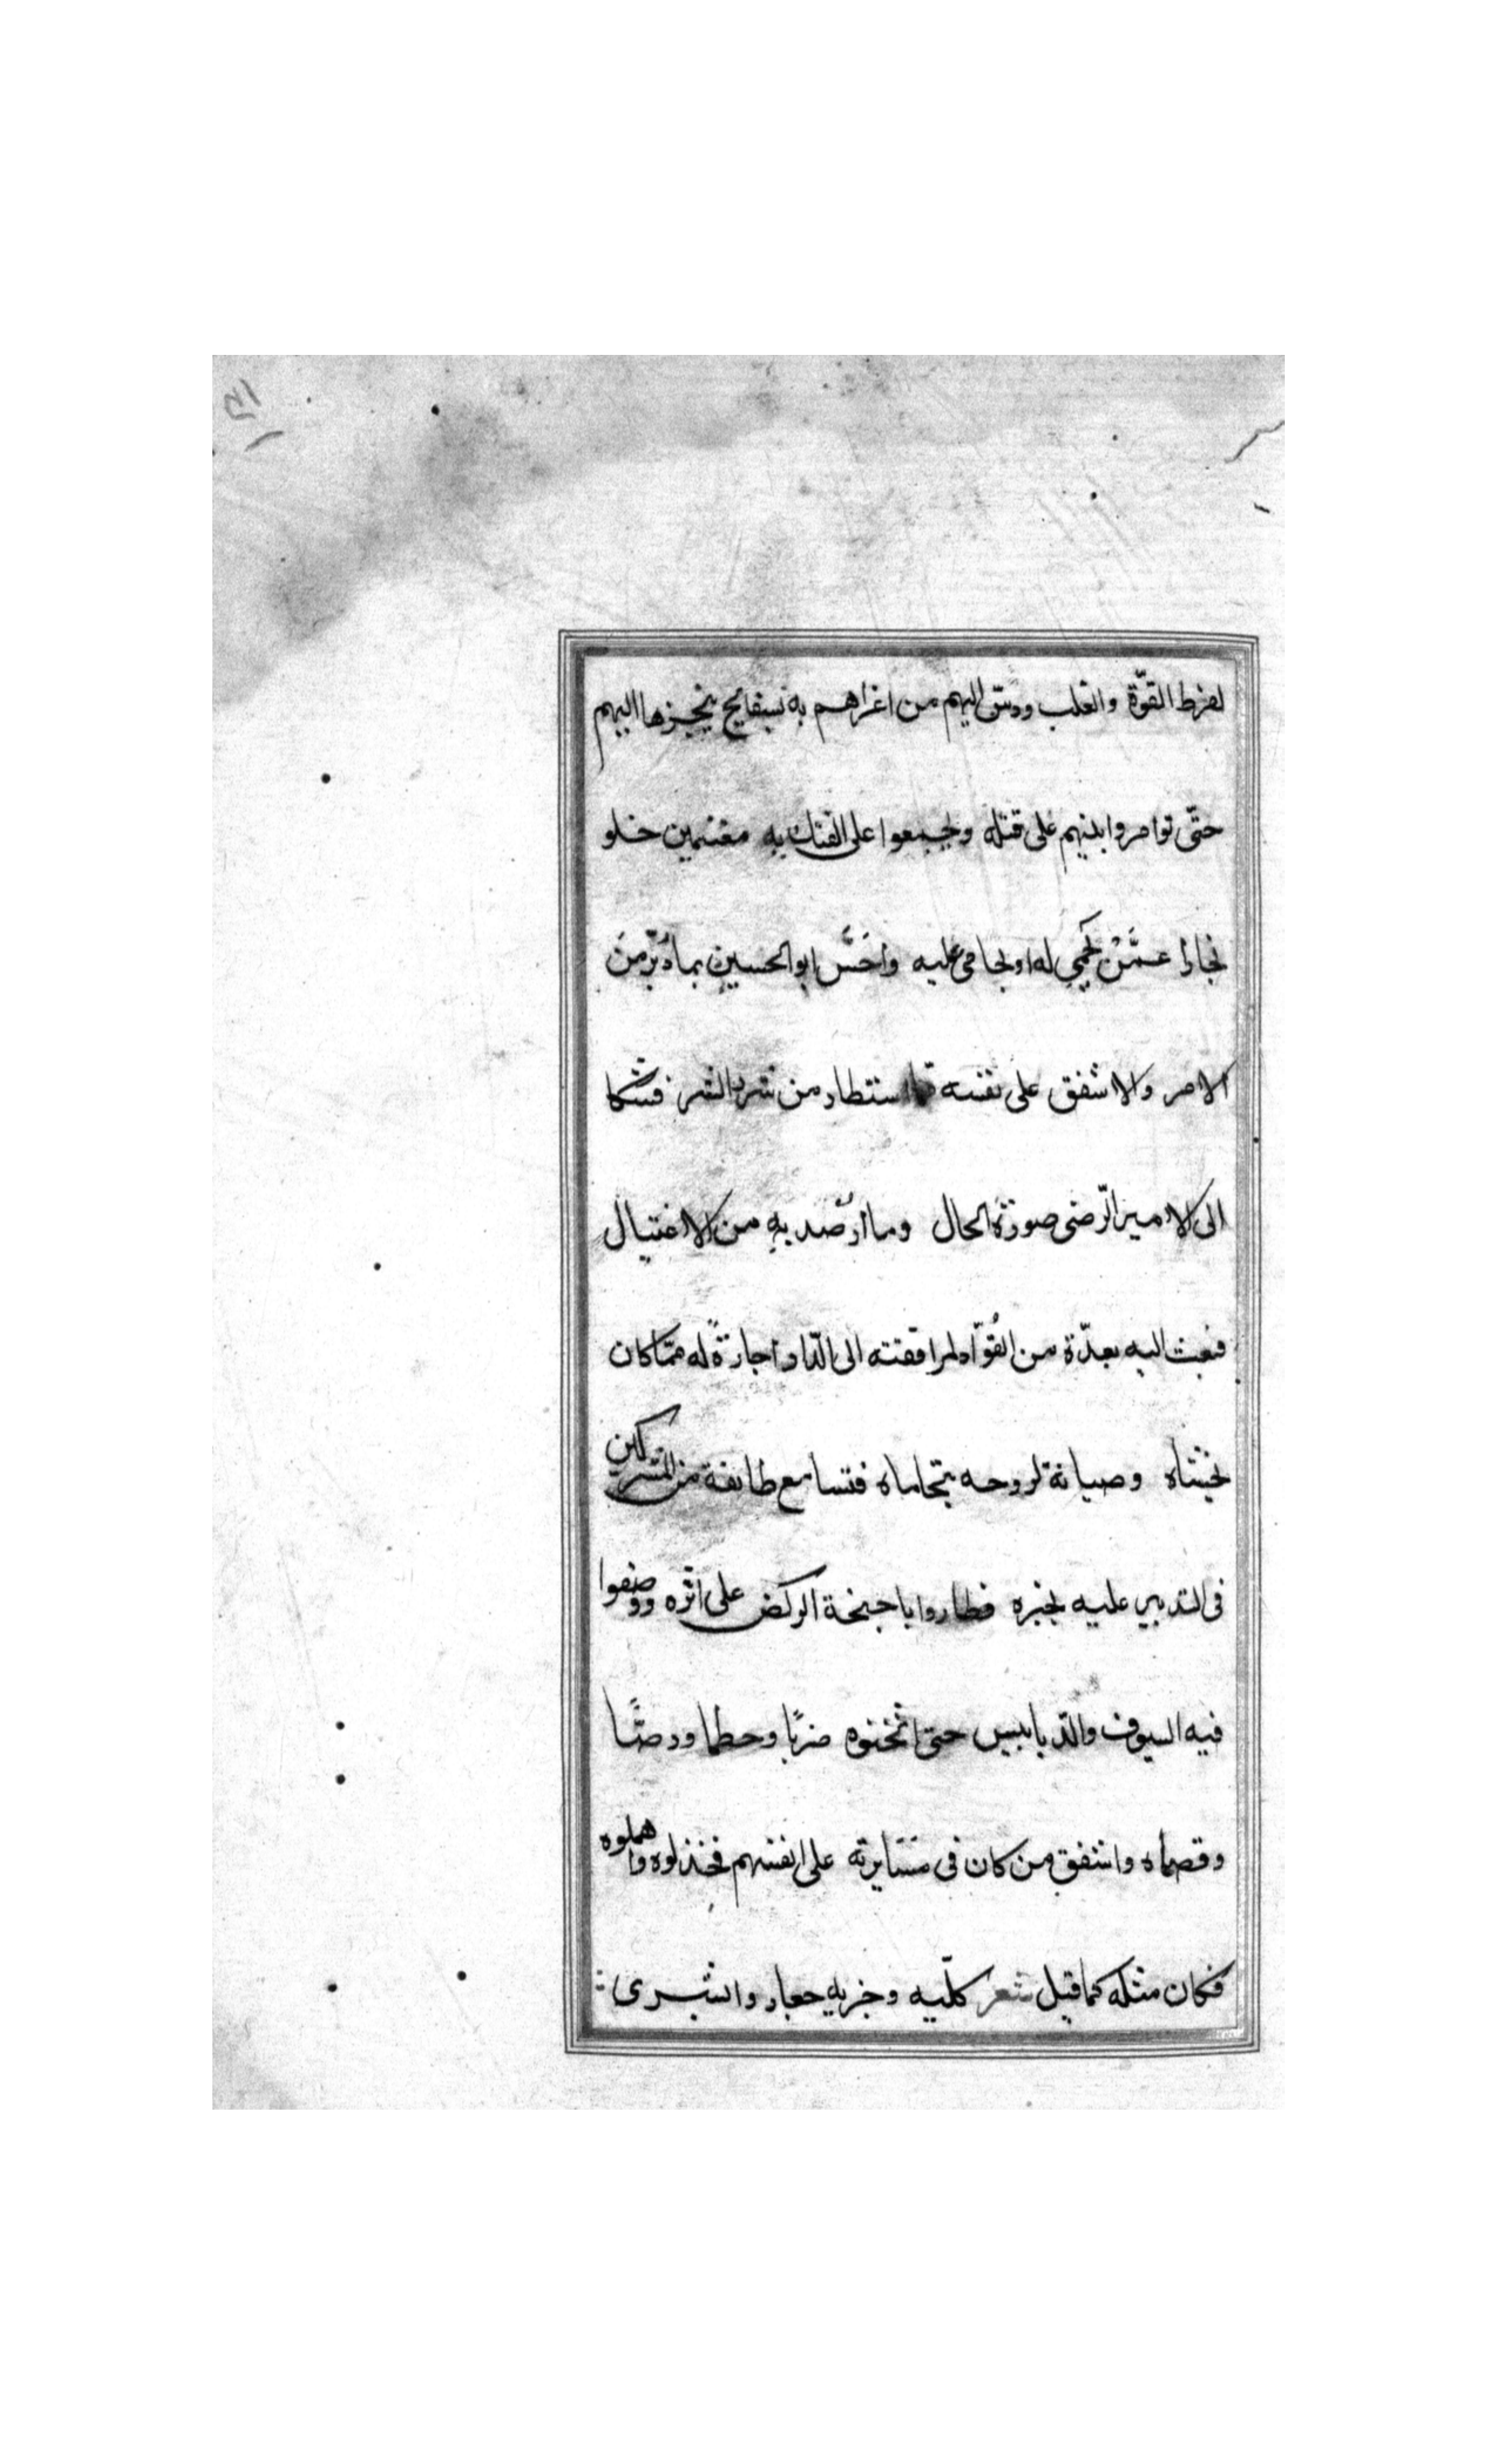 ١٣١
لفرط القوّة والغلب ودسّ اليهم من اغراهم به بسفايح ينجزها اليهم
حتّى توامروا بينهم على قتله وتجمعوا على الفتك به مغتنمين خلو
بخارا عمّن يحمي له او يحامى عليه واحَسَّ ابو الحسين بما دُبّر من
الامر والاشفق على نفسه استطار من شرر الشر فشكا
الى الامير الرّضى صورة الحال وما اُرصد به من الاغتيال
فبعث اليه بعدّة من القُوّاد لمرافقته الى الدّار اجارةً له ممّا كان
يخشاه وصيانة لروحه يتحاماه فتسامع طائفة من المشركين
فى التدبير عليه بخبره فطاروا باجنحة الركض على اثره ووضعوا
فيه السيوف والدّبابيس حتى اثخنوه ضربًا وحطما ورضًّا
وقصماه واشفق من كان فى مسَايرته على انفسهم فخذلوه واهملوه
فكان مثله كما قيل شعر كليه وجريه جعار وابشرى